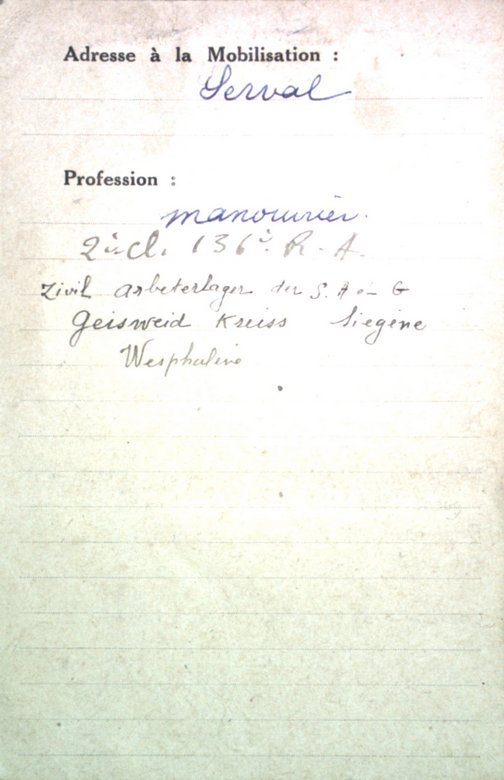 Adresse à la Mobilisation :
Serval
Profession :
manouvrier.
2è cl. 136è R. A.
Zivil arbeterlager der S. A G
Geisweid Kreiss Siegene
Wesphaline